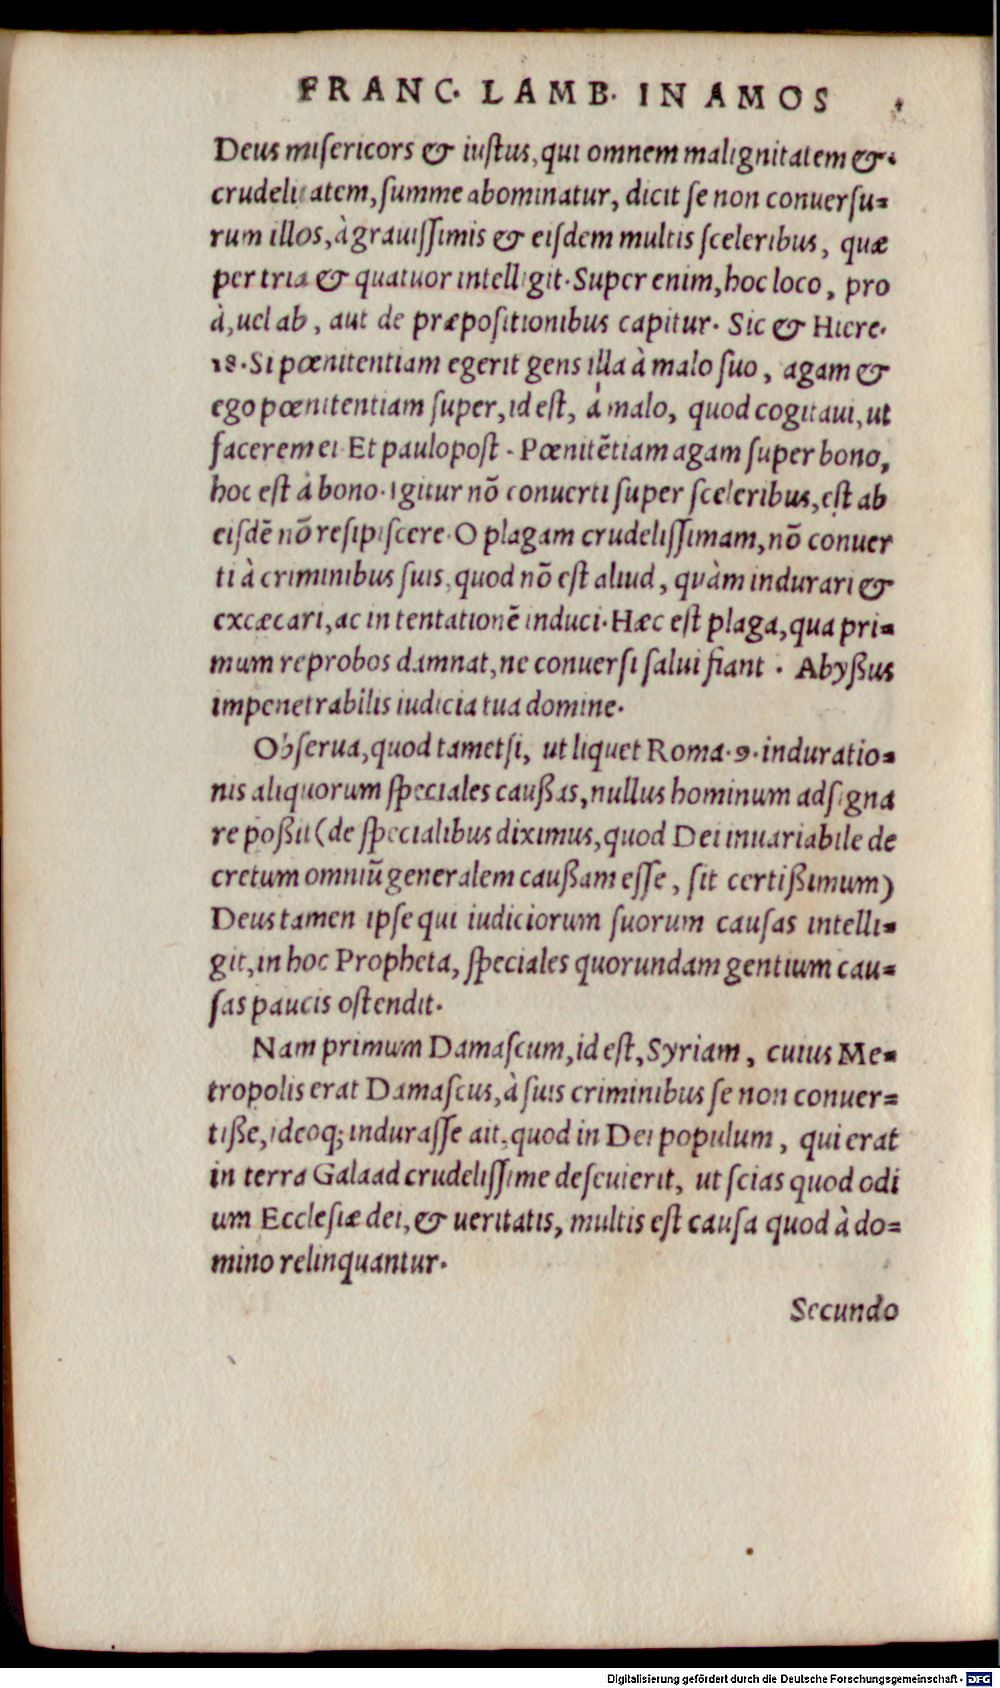 FRANC. LAMB. IN AMOS
Deus miſericors & iuſtus, qui omnem malignitatem &
crudelitatem, ſumme abominatur, dicit ſe non conuerſu=
rum illos, à grauiſſimis & eiſdem multis ſceleribus, quæ
per tria & quatuor intelligit. Super enim, hoc loco, pro
à, uel ab, aut de præpoſitionibus capitur. Sic & Hiere.
18. Si pœnitentiam egerit gens illa à malo ſuo, agam &
ego pœnitentiam ſuper, id eſt, à malo, quod cogitaui, ut
facerem ei. Et paulopoſt. Pœnitētiam agam ſuper bono,
hoc eſt à bono. Igitur nō conuerti ſuper ſceleribus, eſt ab
eiſdē nō reſipiſcere. O plagam crudeliſſimam, nō conuer
ti à criminibus ſuis, quod nō eſt aliud, quàm indurari &
excæcari, ac in tentationē induci. Hæc eſt plaga, qua pri=
mum reprobos damnat, ne conuerſi ſalui fiant. Abyßus
impenetrabilis iudicia tua domine.
Obſerua, quod tametſi, ut liquet Roma. 9. induratio=
nis aliquorum ſpeciales caußas, nullus hominum adſigna
re poßit (de ſpecialibus diximus, quod Dei inuariabile de
cretum omniū generalem caußam eſſe, ſit certißimum)
Deus tamen ipſe qui iudiciorum ſuorum cauſas intelli=
git, in hoc Propheta, ſpeciales quorundam gentium cau=
ſas paucis oſtendit.
Nam primum Damaſcum, id eſt, Syriam, cuius Me=
tropolis erat Damaſcus, à ſuis criminibus ſe non conuer=
tiße, ideoq; induraſſe ait, quod in Dei populum, qui erat
in terra Galaad crudeliſſime deſeuierit, ut ſcias quod odi
um Eccleſiæ dei, & ueritatis, multis eſt cauſa quod à do=
mino relinquantur.
Secundo
Digitalisierung gefördert durch die Deutsche Forschungsgemeinschaft - DFG